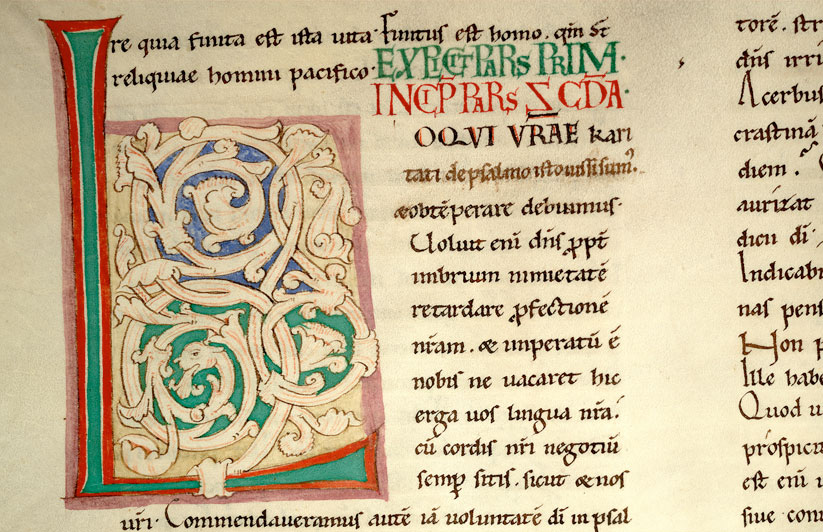 re quia finita est ista uita. Finitus est homo. qm̄ st̄
reliquiae homini pacifico. EXPLICIT PARS PRIM̄·
INCIP̄ PARS SC̄DA·
L OQVI VRAE kari
tati de psalmo isto iussisum᷒.
& obtēperare debuimus·
Uoluit enī dn̄s ꝓpt̄
imbrium nimietatē
retardare ꝓfectionē
nr̄am. & imperatū ē
nobis ne uacaret hic
erga uos lingua nr̄a.
cū cordis nr̄i negotiū
semꝑ sitis. sicut & nos
ur̄i· Commendaueramus autē iā uoluntatē dī in psal
torē.
dn̄s irri
Acerbus
crastinā
diem.
aurizat
dicu dī·
Indicabi
nas pens
Non p
Ille habe
Quod u
prospici
est enī
siue com